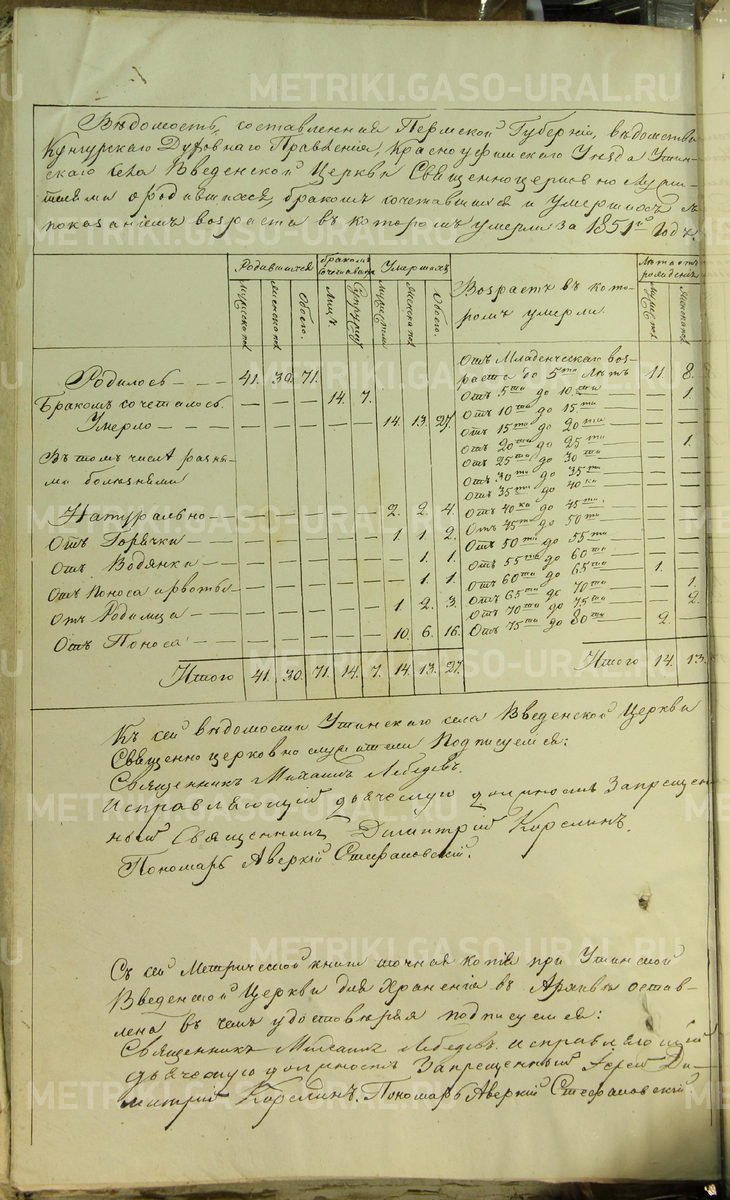 METRIKI.GASO-URAL.RU
Вѣдомость, составленная Пермской Губерніи, вѣдомства
Кунгурскаго Духовнаго Правленія, Красноуфимскаго Уѣзда Утин-
скаго села Введенской Церкви Священноцерковнослужи-
телями о родившихся, бракомъ сочетавшихся и умершихъ съ
показаніемъ возраста въ которомъ умерли за 1851й годъ.
Родившихся бракомъ сочетавш. Умершихъ Возрастъ въ кото- Лѣта отъ рожденія
мужеска женска Обоего. Лицъ Супружествъ мужеска женска Обоего. ромъ умерли. мужеска женска
Родилось — — — 41. 30. 71.
Бракомъ сочеталось. — — — 14. 7.
Умерло — — — — — — — 14. 13. 27.
Въ томъ числѣ разны-
ми болѣзнями
Натурально — — — — — — 2. 2. 4.
Отъ Горячки — — — — — — 1. 1. 2.
Отъ Водянки — — — — — — — 1. 1.
Отъ Поноса и рвоты — — — — — — — 1. 1.
Отъ Родимца — — — — — — 1. 2. 3.
Отъ Поноса — — — — — — 10. 6. 16.
Итого 41. 30. 71. 14. 7. 14. 13. 27.
Отъ Младенческаго воз-
раста до 5ти Лѣтъ 11. 8.
Отъ 5ти до 10ти — 1.
Отъ 10ти до 15ти — —
Отъ 15ти до 20ти — —
Отъ 20ти до 25ти — 1.
Отъ 25ти до 30ти — —
Отъ 30ти до 35ти — —
Отъ 35ти до 40ка — —
Отъ 40ка до 45ти — —
Отъ 45ти до 50ти — —
Отъ 50ти до 55ти — —
Отъ 55ти до 60ти — —
Отъ 60ти до 65ти 1. —
Отъ 65ти до 70ти — 1.
Отъ 70ти до 75ти — 2.
Отъ 75ти до 80ти 2. —
Итого 14. 13.
Къ сей вѣдомости Утинскаго села Введенской Церкви
Священноцерковнослужители Подписуемся:
Священникъ Михаилъ Лебедевъ.
Исправляющій дьяческую должность Запрещен-
ный Священникъ Димитрій Корелинъ.
Пономарь Аверкій Стефановскій.
Съ сей Метрической книги точная копія при Утинской
Введенской Церкви для Храненія въ Архивѣ остав-
лена въ чемъ удостовѣряя подписуемся:
Священникъ Михаилъ Лебедевъ. исправляющій
дьяческую должность Запрещенный Іерей Ди-
митрій Корелинъ. Пономарь Аверкій Стефановскій